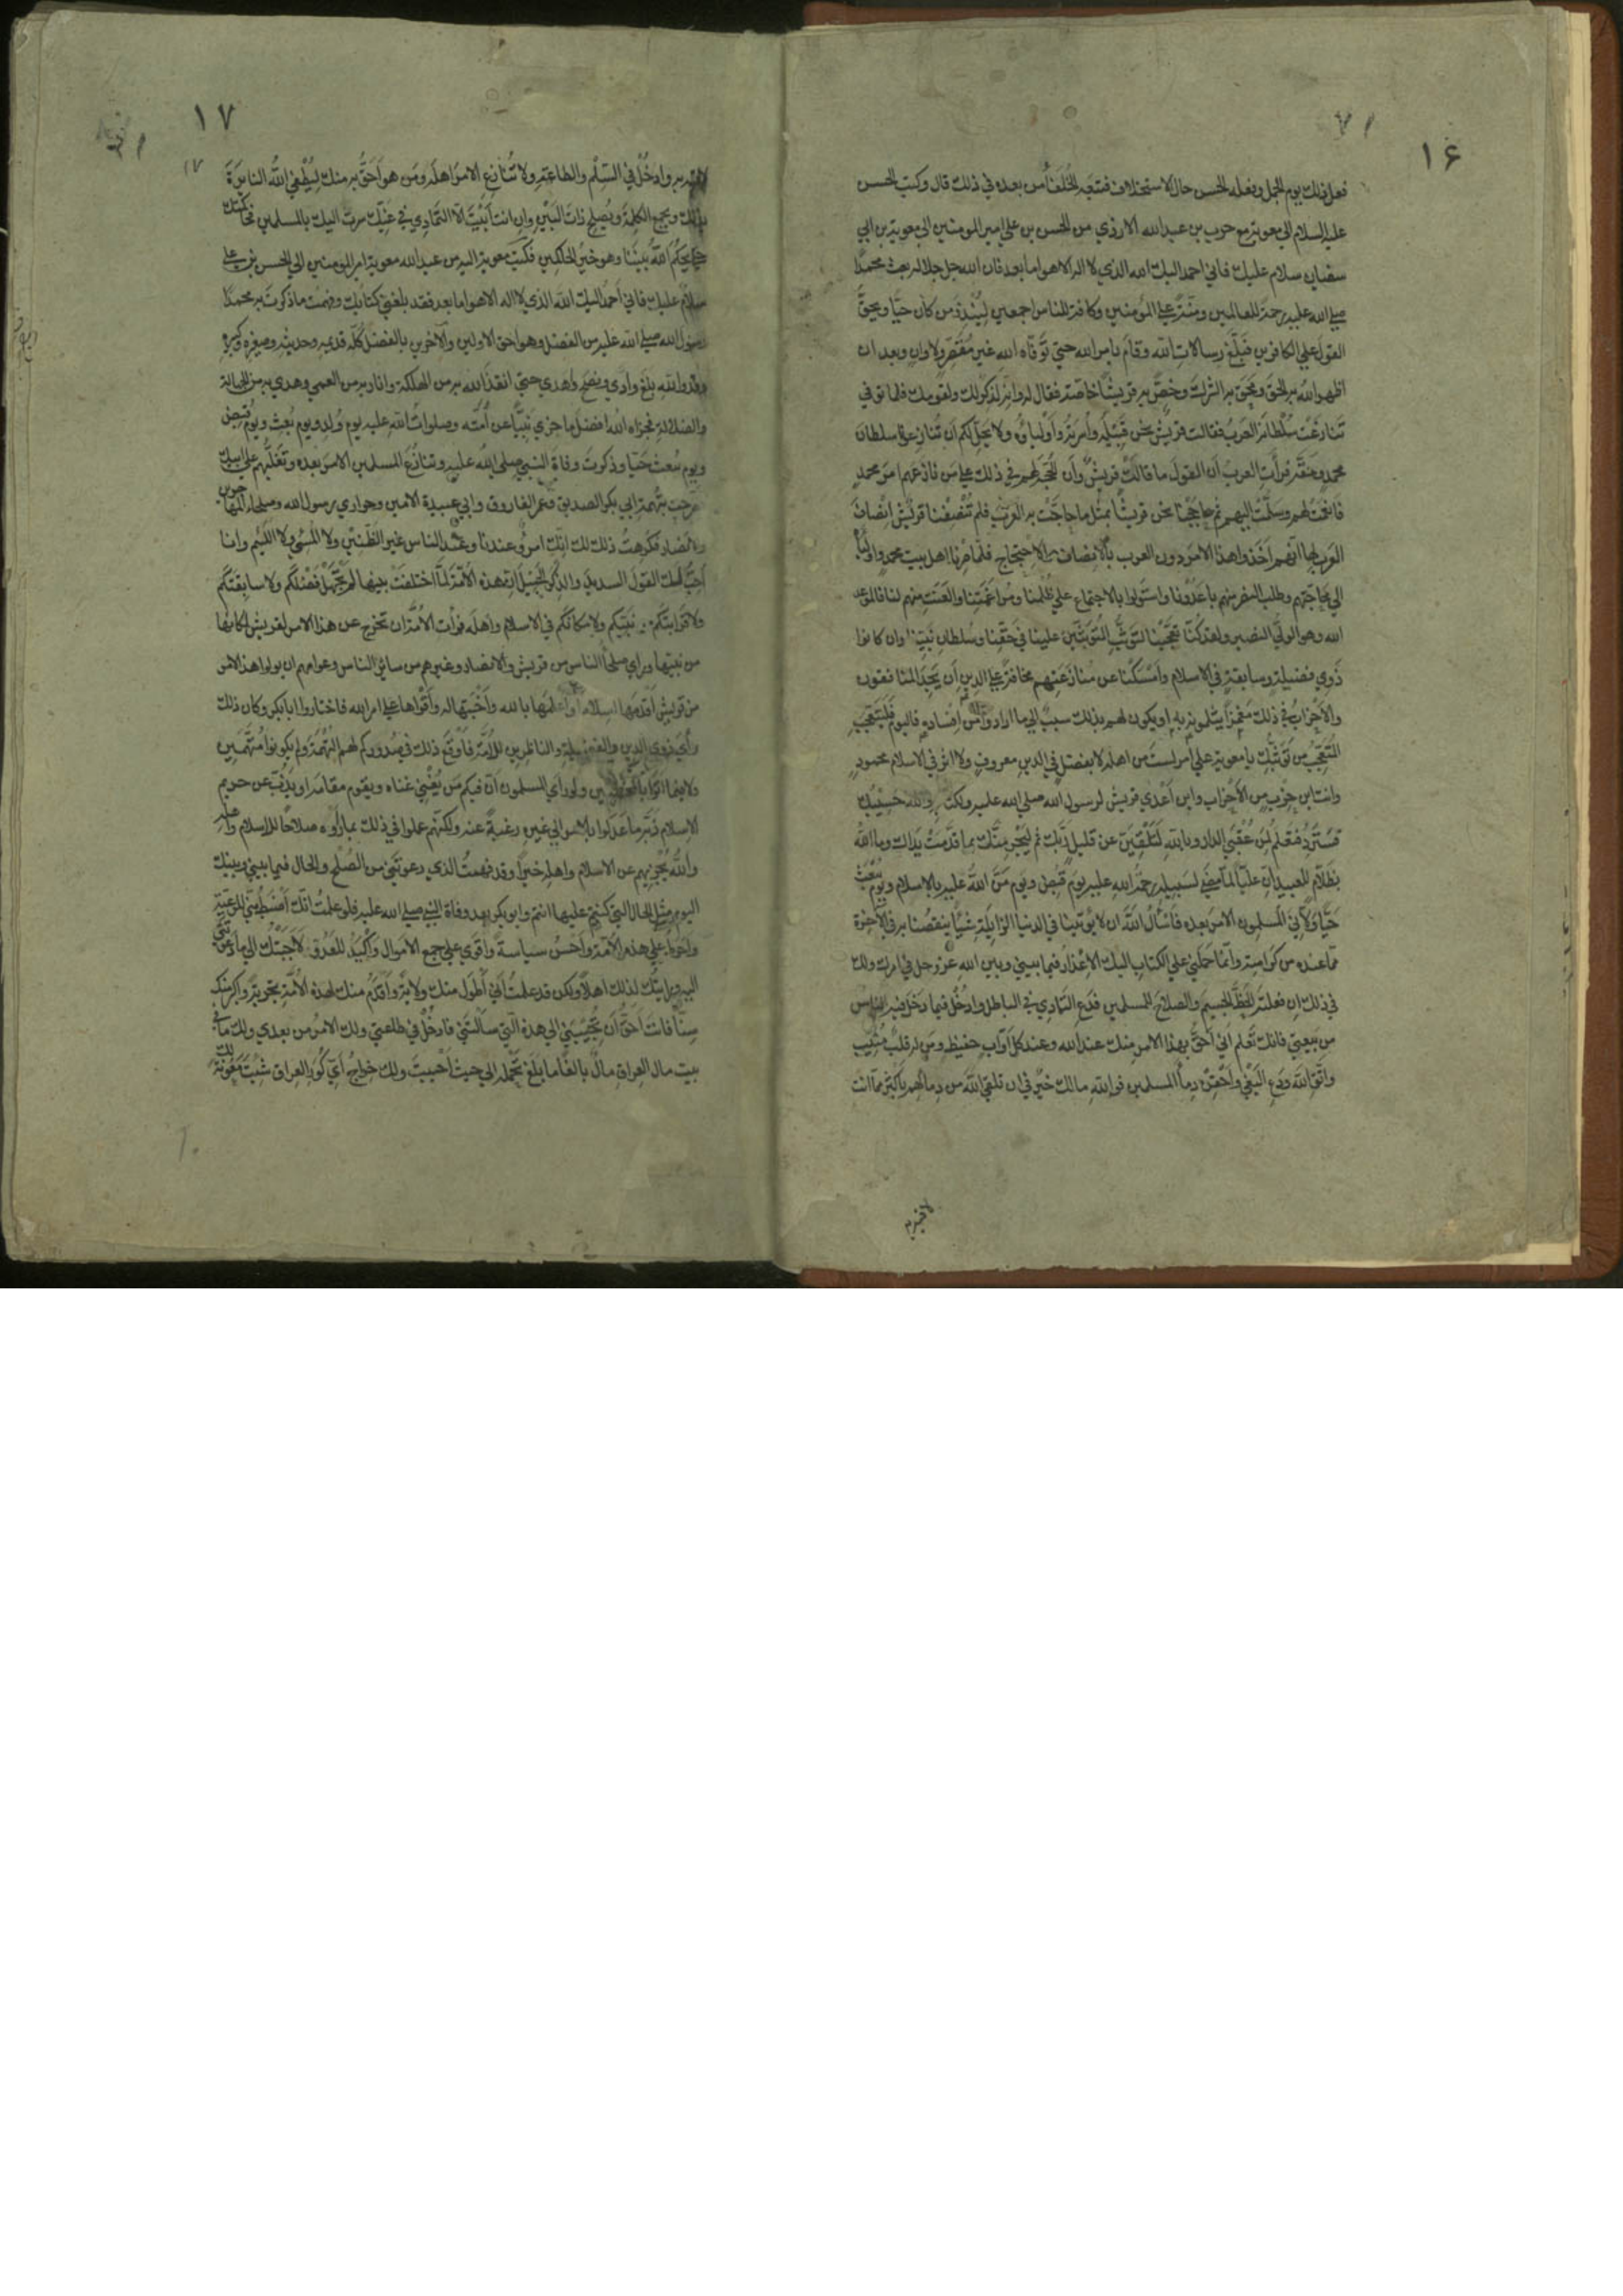 ١۶
فعل ذلك يوم الجمل وفعله الحسن حال الاستخلاف فتبعه الخلفاء من بعده في ذلك قال وكتب الحسن
عليه السلام الى معوية مع حرب بن عبد الله الازدي من الحسن بن علي امير المومنين الى معوية بن ابي
سفيان سلام عليك فاني احمد اليك الله الذي لا اله الا هو اما بعد فان الله جل جلاله بعث محمدًا
صلي الله عليه رحمة للعالمين ومنّة علي المؤمنين وكافة للناس اجمعين لِيُنْذِرَ من كان حيًّا ويحقَّ
القول علي الكافرين فبلّغ رسالات الله وقام بامر الله حتي توَفّاه الله غير مُقَصِّر ولا وانٍ وبعد ان
اظهر الله به الحق ومحق به الشرك وخصّ به قريشًا خاصّة فقال له وانه لذكر لك ولقومك فلما توفي
تنازعَت سُلْطانَه العرَبُ فقالت قريش نحن قبيلته وأسرته وأولياؤه ولا يحلّ لكم ان تنازعونا سلطان
محمد وحقّه فرأت العربُ أن القول ما قالت قريشٌ وأن الحجة لهم في ذلك علي من نازعهم امرَ محمدٍ
فانعمت لهم وسلّمت اليهم ثم حاججنا نحن قريشًا بمثل ما حاجّت به العربَ فلم تُنْصِفنا قريش انصافَ
العرب لها انهم اخذوا هذا الامر دون العرب بالانصاف والاحتجاج فلمّا صِرْنا اهل بيت محمد واولياءه
الي محاجّتهم وطلب النصف منهم باعَدُونا واستولوا بالاجتماع علي ظُلْمنا ومُراغَمتِنا والعَنَت منهم لنا فالموعد
الله وهو الوليّ النصير ولقد كنّا تعجّبنا لتوثُّب المُتَوَثِّبين علينا في حَقّنا وسُلطان نبيّنا وان كانوا
ذَوي فضيلة وسابقة في الاسلام وأمْسَكْنا عن مُنازَعَتِهم مخافةً علي الدين أن يجدَ المنافقون
والاحزابُ في ذلك مَغْمَزًا يثلمونه به او يكون لهم بذلك سببٌ الي ما ارادوا من افساده فاليوم فليتعجّب
المُتَعَجِّبُ من توثُّبك يا معوية علي امر لستَ من اهله لا بفضل في الدين معروفٍ ولا اثر في الاسلام محمودٍ
وانت ابن حزب من الأحزاب وابن أعْدي قريش لرسول الله صلي الله عليه ولكتابه والله حَسيبك
فستُرَدّ فتعلم لمن عُقْبَي الدار وبالله لَتَلْقَيَنّ عن قليل ربَّك ثم ليجزينّك بما قدّمَتْ يداك وما الله
بظلّام للعبيد ان عليًّا لما مَضَي لسبيله رحمةُ الله عليه يوم قُبِض ويوم مَنّ الله عليه بالاسلام ويوم يُبْعَث
حيًّا ولّاني المسلمون الامر بعده فأسأل الله ان لا يؤتينا في الدنيا الزايلة شيئًا ينقصنا به في الآخرة
ممّا عنده من كرامته وانما حملني علي الكتاب اليك الاعذار فيما بيني وبين الله عز وجل في امرك ولك
في ذلك إن فعلتَه الحظّ الجسيم والصلاح للمسلمين فدَع التمادي في الباطل وادخُل فيما دَخل فيه الناس
من بَيعتي فانك تعلم انّي أحَقُّ بهذا الامر منك عند الله وعند كل أوّاب حفيظ ومَن له قلبٌ مُنيب
واتّق الله ودَع البَغْيَ واحْقِنْ دماء المسلمين فوالله مالك خيرٌ في ان تلقي الله من دمائهم باكثر مما انت
لاقيه
١٧
١٧
لاقيه به وادخُلْ في السِّلْم والطاعة ولا تُنازع الامر اهلَه ومَن هو احَقُّ به منك ليُطْفِئ الله النائرةَ
بذلك ويجمع الكلمة ويُصلح ذات البَيْن وإن انت أبَيْتَ الّا التمادي في غيّك سرتُ اليك بالمسلمين فحاكمتك
حتي يحكُم الله بيننا وهو خيرُ الحاكمين فكتب معوية اليه من عبد الله معوية امير المومنين الي الحسن بن علي
سلامٌ عليك فاني أحمدُ اليك الله الذي لا اله الا هو اما بعد فقد بلغني كتابك وفهمتُ ما ذكرتَ به محمدًا
رسول الله صلي الله عليه من الفضل وهو احق الاولين والآخرين بالفضل كلّه قديمه وحديثه وصغيره وكبيره
وقد والله بلّغ وأدي ونصَحَ وهَدي حتي انقذ الله به من الهلكة وانار به من العمي وهدي به من الجهالة
والضلالة فجزاه الله أفضل ما جزي نبيًّا عن أُمّته وصلوات الله عليه يوم وُلد ويوم بُعِث ويوم قُبِض
ويوم يُبعث حيًّا وذكرتَ وفاةَ النبي صلي الله عليه وتنازُعَ المسلمين الامر بعده وتغلُّبهم علي ابيك
فصرّحتَ بتُهمة ابي بكر الصديق وعمر الفاروق وابي عبيدة الامين وحواري رسول الله وصلحاء المهاجرين
والانصار فكرهتُ ذلك لك انك امرؤ عندنا وعند الناس غير الظَّنين ولا المُسيء ولا اللئيم وانا
أحبّ لك القول السديد والذكر الجميل ان هذه الأمّة لمّا اختلفَت بينها لم تجْهَلْ فضلكم ولا سابقتكم
ولا قرابتكم من نبيّكم ولا مكانكم في الاسلام واهله فرأت الأمّة ان تخرج عن هذا الامر لقريش لمكانها
من نبيّها وراي صلحاء الناس من قريش والانصار وغيرهم من سائر الناس وعوامهم ان يولوا هذا الامر
من قريش أقدَمها اسلامًا وأعلمَها بالله وأحَبَّها له وأقْواها علي امر الله فاختاروا ابا بكر وكان ذلك
رأيَ ذوي الدين والفضيلة والناظرين للأُمّة فأوقَعَ ذلك في صُدوركم لهم التُهمَةَ ولم يكونوا مُتَّهَمين
ولا فيما اتَوا بالمخطئين ولو رَأي المسلمون أنّ فيكم مَن يُغْني غناه ويقوم مقامه او يَذُبّ عن حريم
الاسلام ذَبّه ما عَدَلوا بالامر الي غيره رغبةً عنه ولكنّهم عملوا في ذلك بما رأوه صلاحًا للاسلام واهله
والله يُجْزيهم عن الاسلام واهله خيرًا وقد فهمتُ الذي دعوتَني من الصُلْح والحال فيما بيني وبينك
اليوم مِثْل الحال التي كنتم عليها انتم وابو بكر بعد وفاة النبي صلي الله عليه فلو علمتُ انّك أضْبَطُ مني للرعيّة
واحوط علي هذه الأمّة واحسنُ سياسةً وأقوَي علي جمع الاموال وأكْيَدُ للعَدُوّ لأجَبْتُك الي ما دعوتني
اليه ورايتُك لذلك اهلًا ولكن قد علمتُ أنّي أطولُ منك ولايةً وأقدَمُ منك لهذه الأمّة تجربةً واكبر منك
سِنًّا فانت احَقُّ أن تُجيبَني الي هذه التي سألتَني فادخُلْ في طاعتي ولك الامرُ من بعدي ولك ما في
بيت مال العراق من مالٍ بالغًا ما بلَغ تحمله الي حيثُ أحْببتَ ولك خراجُ أيّ كُوَر العراق شِئتَ مَعُونةً لك